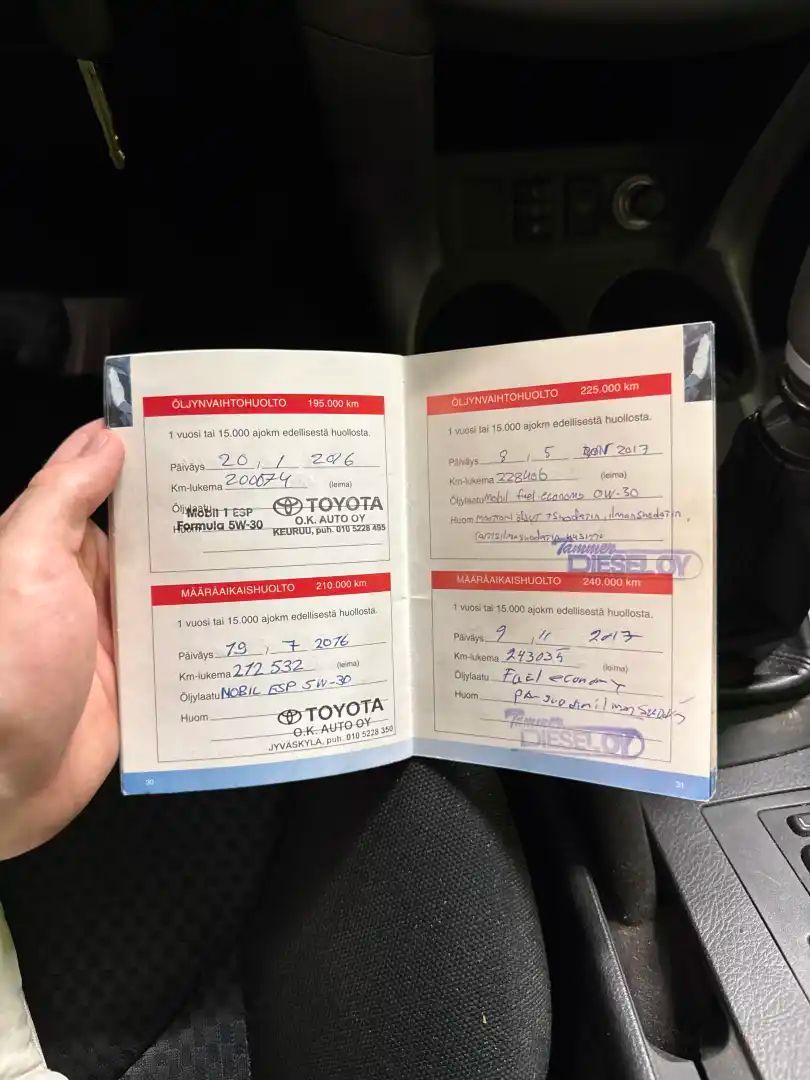 ÖLJYNVAIHTOHUOLTO 195.000 km
1 vuosi tai 15.000 ajokm edellisestä huollosta.
Päiväys 20 , 1 2016
Km-lukema 200074 (leima)
Öljylaatu Mobil 1 ESP
Formula 5W-30
Huom
TOYOTA
O.K. AUTO OY
KEURUU, puh. 010 5228 495
MÄÄRÄAIKAISHUOLTO 210.000 km
1 vuosi tai 15.000 ajokm edellisestä huollosta.
Päiväys 19 , 7 2016
Km-lukema 212 532 (leima)
Öljylaatu MOBIL ESP 5W-30
Huom
TOYOTA
O.K. AUTO OY
JYVÄSKYLÄ, puh. 010 5228 350
30
ÖLJYNVAIHTOHUOLTO 225.000 km
1 vuosi tai 15.000 ajokm edellisestä huollosta.
Päiväys 8 , 5 2017
Km-lukema 228406 (leima)
Öljylaatu Mobil fuel economy 0W-30
Huom Moottoriöljyt + suodatin, ilmansuodatin,
raitisilmasuodatin
Tammer
DIESEL OY
MÄÄRÄAIKAISHUOLTO 240.000 km
1 vuosi tai 15.000 ajokm edellisestä huollosta.
Päiväys 9 , 11 2017
Km-lukema 243035 (leima)
Öljylaatu Fuel economy
Huom
Tammer
DIESEL OY
31